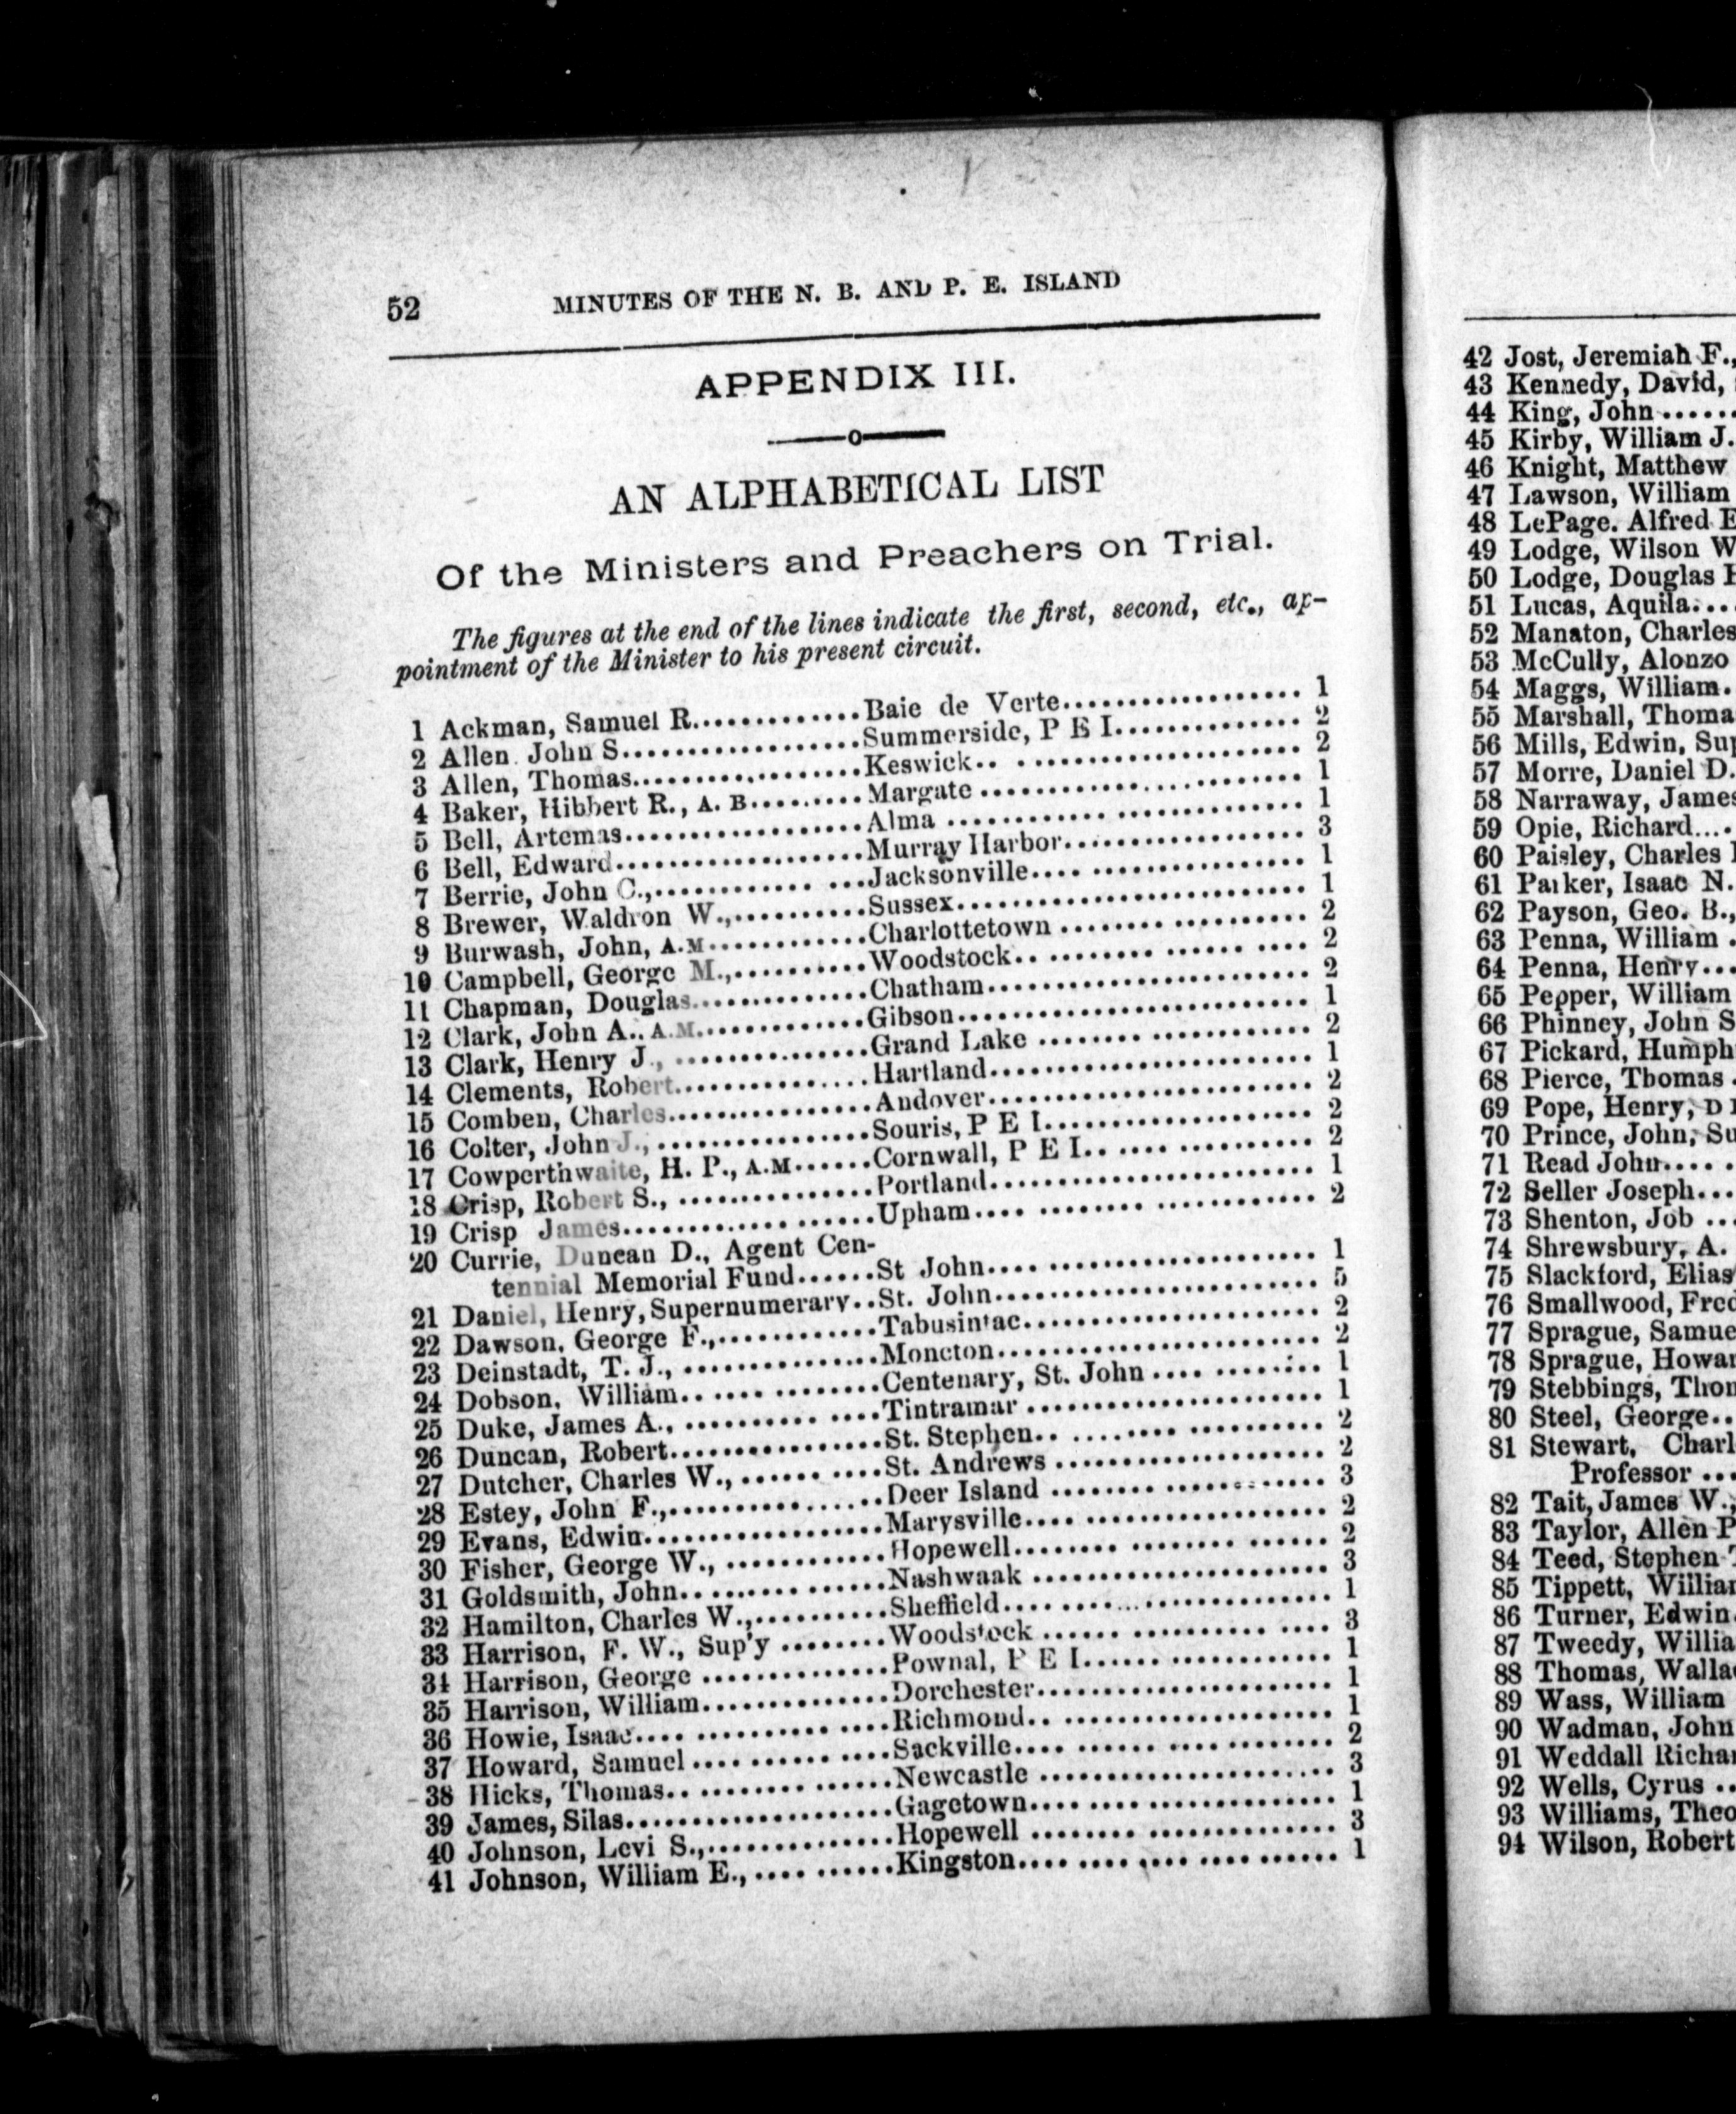 52 MINUTES OF THE N. B. AND P. E. ISLAND
APPENDIX III.
AN ALPHABETICAL LIST
Of the Ministers and Preachers on Trial.
The figures at the end of the lines indicate the first, second, etc., ap-
pointment of the Minister to his present circuit.
1 Ackman, Samuel R.............Baie de Verte.................. 1
2 Allen John S..................Summerside, P E I.............. 2
3 Allen, Thomas.................Keswick...................... 2
4 Baker, Hibbert R., A. B.........Margate ...................... 1
5 Bell, Artemas..................Alma ........................ 1
6 Bell, Edward...................Murray Harbor.................. 3
7 Berrie, John C.,...............Jacksonville.................... 1
8 Brewer, Waldron W.,..........Sussex.......................... 1
9 Burwash, John, A.M............Charlottetown .................. 2
10 Campbell, George M.,..........Woodstock...................... 2
11 Chapman, Douglas.............Chatham........................ 2
12 Clark, John A., A.M.............Gibson.......................... 1
13 Clark, Henry J., ...............Grand Lake .................... 2
14 Clements, Robert...............Hartland........................ 1
15 Comben, Charles...............Andover........................ 2
16 Colter, John J., ................Souris, P E I.................... 2
17 Cowperthwaite, H. P., A.M......Cornwall, P E I................ 2
18 Crisp, Robert S., ...............Portland........................ 1
19 Crisp James...................Upham........................ 2
20 Currie, Duncan D., Agent Cen-
tennial Memorial Fund......St John........................ 1
21 Daniel, Henry, Supernumerary..St. John........................ 5
22 Dawson, George F.,............Tabusintac...................... 2
23 Deinstadt, T. J., ...............Moncton........................ 2
24 Dobson, William................Centenary, St. John ............ 1
25 Duke, James A., ..............Tintramar ...................... 1
26 Duncan, Robert................St. Stephen.................... 2
27 Dutcher, Charles W., ..........St. Andrews .................... 2
28 Estey, John F.,................Deer Island .................... 3
29 Evans, Edwin..................Marysville...................... 2
30 Fisher, George W., ............Hopewell...................... 2
31 Goldsmith, John................Nashwaak ...................... 3
32 Hamilton, Charles W.,..........Sheffield........................ 1
33 Harrison, F. W., Sup'y ........Woodstock .................... 3
34 Harrison, George ..............Pownal, P E I.................. 1
35 Harrison, William..............Dorchester...................... 1
36 Howie, Isaac..................Richmond...................... 1
37 Howard, Samuel ..............Sackville...................... 2
38 Hicks, Thomas................Newcastle ...................... 3
39 James, Silas....................Gagetown...................... 1
40 Johnson, Levi S.,..............Hopewell ...................... 3
41 Johnson, William E., ..........Kingston...................... 1
42 Jost, Jeremiah F.,
43 Kennedy, David,
44 King, John ......
45 Kirby, William J.
46 Knight, Matthew
47 Lawson, William
48 LePage. Alfred E
49 Lodge, Wilson W
50 Lodge, Douglas
51 Lucas, Aquila....
52 Manaton, Charles
53 McCully, Alonzo
54 Maggs, William.
55 Marshall, Thoma
56 Mills, Edwin, Sup
57 Morre, Daniel D.
58 Narraway, James
59 Opie, Richard....
60 Paisley, Charles
61 Parker, Isaac N.
62 Payson, Geo. B.,
63 Penna, William .
64 Penna, Henry...
65 Pepper, William
66 Phinney, John S
67 Pickard, Humph
68 Pierce, Thomas .
69 Pope, Henry, D
70 Prince, John, Su
71 Read John.....
72 Seller Joseph...
73 Shenton, Job ...
74 Shrewsbury, A.
75 Slackford, Elias
76 Smallwood, Fred
77 Sprague, Samue
78 Sprague, Howar
79 Stebbings, Thom
80 Steel, George..
81 Stewart, Charl
Professor ...
82 Tait, James W.,
83 Taylor, Allen P
84 Teed, Stephen T
85 Tippett, William
86 Turner, Edwin
87 Tweedy, Willia
88 Thomas, Walla
89 Wass, William
90 Wadman, John
91 Weddall Richar
92 Wells, Cyrus ..
93 Williams, Theo
94 Wilson, Robert